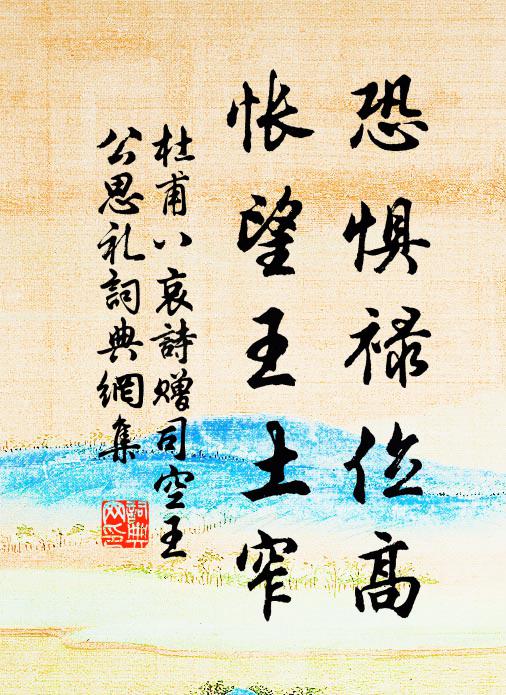 恐惧禄位高
怅望王土窄
杜甫八哀詩赠司空王
公思礼詞典網集
詞典
网印